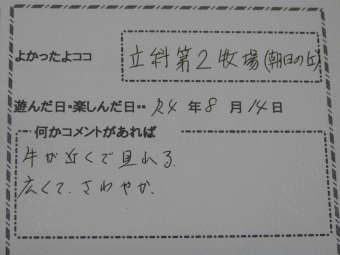 よかったよココ 立科第2牧場(朝日の丘)
遊んだ日・楽しんだ日・・ R4 年 8 月 14 日
何かコメントがあれば
牛が近くで見れる.
広くて、さわやか.